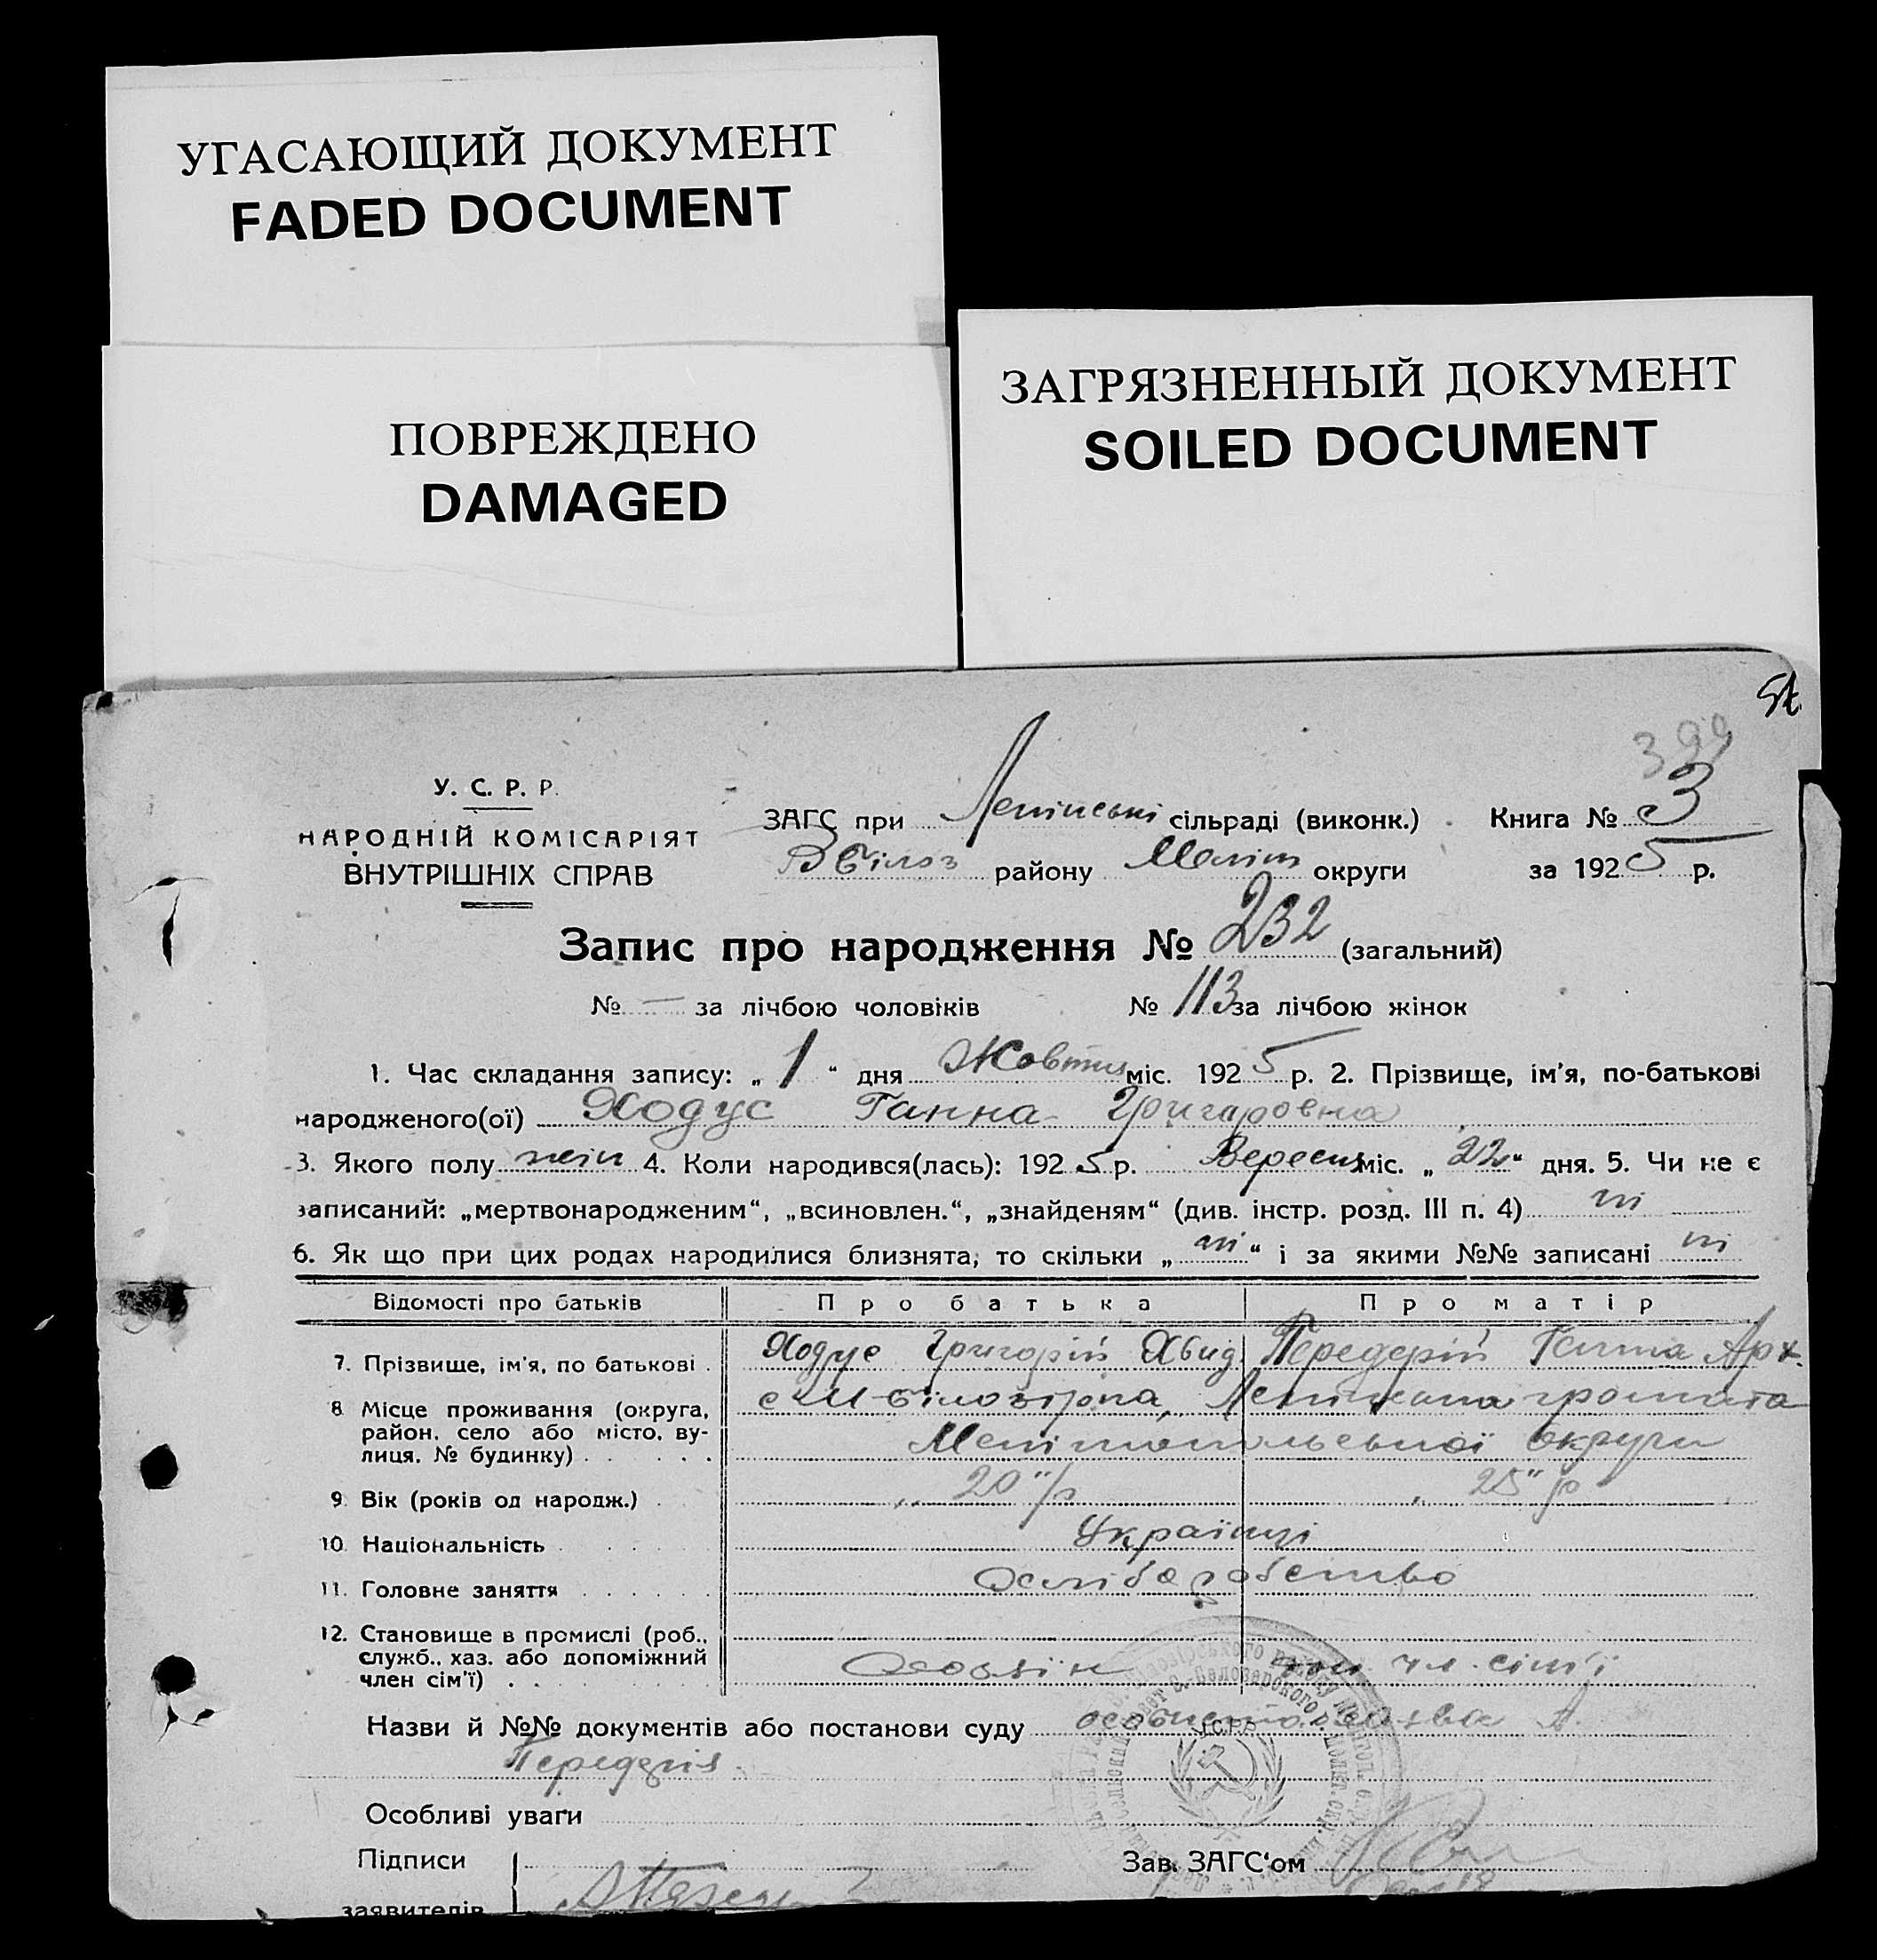 УГАСАЮЩИЙ ДОКУМЕНТ
FADED DOCUMENT
ПОВРЕЖДЕНО
DAMAGED
ЗАГРЯЗНЕННЫЙ ДОКУМЕНТ
SOILED DOCUMENT
399
У. С. Р. Р.
НАРОДНІЙ КОМІСАРІЯТ
ВНУТРІШНІХ СПРАВ
ЗАГС при Ленінські сільраді (виконк.) Книга № 3
району Меліт округи за 1925 р.
Запис про народження № 232 (загальний)
№ — за лічбою чоловіків № 113 за лічбою жінок
1. Час складання запису: „ 1 “ дня Жовтня міс. 1925 р. 2. Прізвище, ім'я, по-батькові
народженого(ої) Ходус Ганна Григаровна
3. Якого полу жін 4. Коли народився(лась): 1925 р. Вересня міс. „ 22 “ дня. 5. Чи не є
записаний: „мертвонародженим“, „всиновлен.“, „знайденям“ (див. інстр. розд. III п. 4) ні
6. Як що при цих родах народилися близнята, то скільки „ ні “ і за якими №№ записані ні
Відомості про батьків Про батька Про матір
7. Прізвище, ім'я, по батькові . Ходус Григорій Передерій Ганна Арх.
8. Місце проживання (округа, район, село або місто, вулиця, № будинку) . . . . . . Білозірка, громада
Мелітопольської округи
9. Вік (років од народж.) . „ 20 " р „ 25 " р
10. Національність . . . . . Українці
11. Головне заняття . . . . . хліборобство
12. Становище в промислі (роб., служб., хаз. або допоміжний член сім'ї) . . . . . чл. сім'ї
Назви й №№ документів або постанови суду особиста заява А.
Передерія
Особливі уваги
Підписи
заявителів
Зав. ЗАГС'ом
У.С.Р.Р.